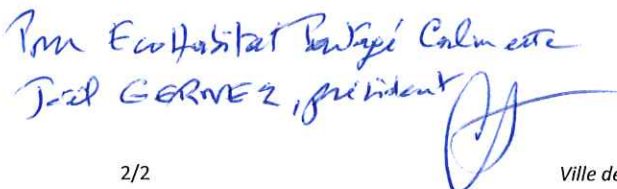 Pour EcoHabitat Partagé
Joël GERNEZ, président
2/2 Ville de